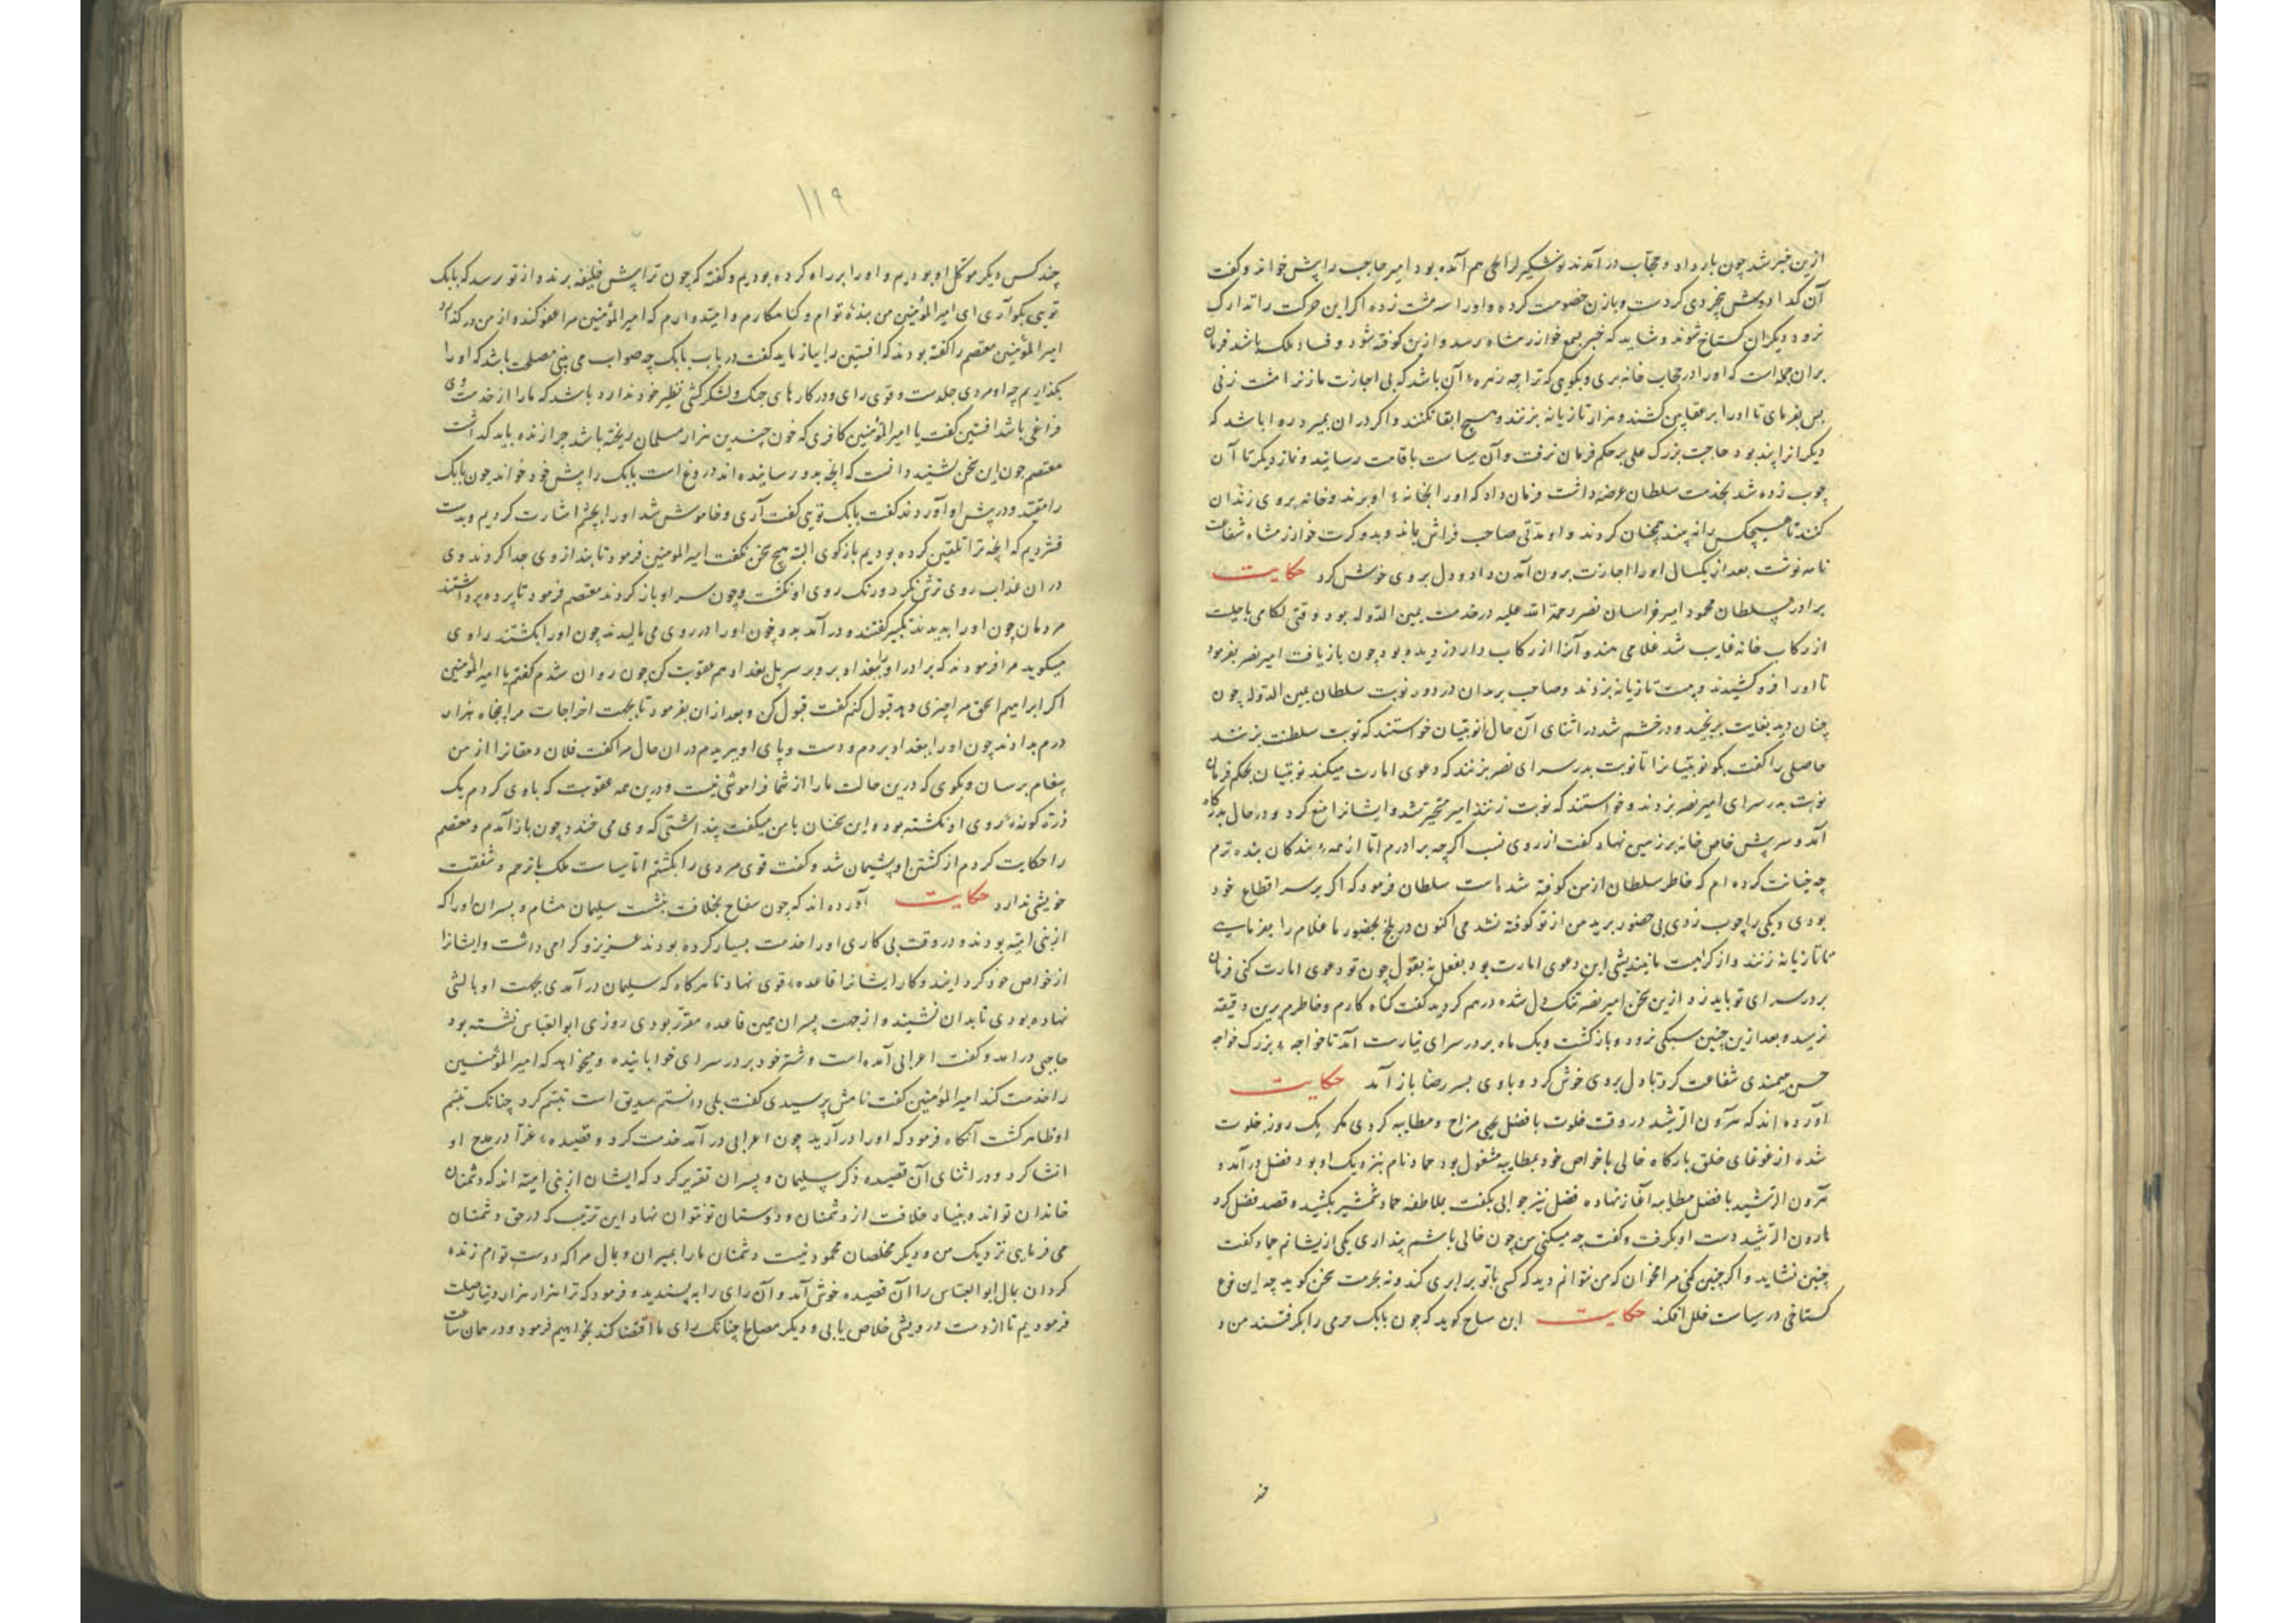 ازین خبر شد چون بار داد و حجاب در آمدند نوشتکین لرالحی هم آمده بود امیر حاجب را پیش خواند و گفت
آن گدا درویش بیخردی کردست و با زن خصومت کرده و او را سه مشت زده اگر این حرکت را تدارک
نرود دیگران گستاخ شوند و شاید که خبر بسمع خوارزمشاه رسد و ازین کوفته شود و فساد ملک باشد فرمان
بران جمله است که او را در حجاب خانه بری و بگویی که ترا چه زهره آن باشد که بی اجازت ما زنرا مشت زنی
پس بفرمای تا او را بر عقابین کشند و هزار تازیانه بزنند و هیچ ابقا نکنند و اگر در ان بمیرد روا باشد که
دیگرانرا پند بود حاجب بزرگ علی بر حکم فرمان برفت و آن سیاست باقامت رسانید و نماز دیگر تا آن
چوب زده شد بخدمت سلطان عرضه داشت فرمان داد که او را بخانه او برند و خانه بروی زندان
کنند تا هیچکس را نه بیند همچنان کردند و او مدتی صاحب فراش ماند و بدو کرت خوارزمشاه شفاعت
نامه نوشت بعد از یکسال او را اجازت برون آمدن داد و دل بروی خوش کرد حکایت
برادر سلطان محمود امیر خراسان نصر رحمة الله علیه در خدمت یمین الدوله بود وقتی لگامی با حلیت
از رکاب خانه غایب شد غلامی هندو آنرا از رکاب دار دزدیده بود چون باز یافت امیر نصر بفرمود
تا او را فرو کشیدند و بیست تازیانه بزدند و صاحب بریدان در دور نوبت سلطان یمین الدوله چون
چنان دید بغایت برنجید و در خشم شد در اثنای آن حال نوبتیان خواستند که نوبت سلطنت بزنند
حاصلی را گفت بگو نوبتیانرا تا نوبت بدر سرای نصر بزنند که دعوی امارت میکند نوبتیان بحکم فرمان
نوبت بدر سرای امیر نصر بزدند و خواستند که نوبت زنند امیر متحیر شد و ایشانرا منع کرد و در حال بدرگاه
آمد و سر پیش خاص خانه بر زمین نهاد و گفت از روی نسب اگر چه برادرم اما از همه بندگان بنده ترم
چه خیانت کرده ام که خاطر سلطان از من کوفته شده است سلطان فرمود که اگر بر سر اقطاع خود
بودی و یکی را چوب زدی بی حضور برید من از تو کوفته نشدمی اکنون در بلخ بحضور ما غلام را بفرمایی
تا تازیانه زنند و از کراهیت ما نیندیشی این دعوی امارت بود بفعل نه بقول چون تو دعوی امارت کنی فرمان
بر در سرای تو باید زد ازین سخن امیر نصر تنگ دل شده درهم گردید گفت گناه کارم و خاطرم برین دقیقه
نرسید و بعد ازین چنین سبکی نرود و بازگشت و یک ماه بر در سرای نیارست آمد تا خواجه بزرگ خواجه
حسن میمندی شفاعت کرد تا دل بروی خوش کرد و با وی بسر رضا باز آمد حکایت
آورده اند که هرون الرشید در وقت خلوت با فضل یحیی مزاح و مطایبه کردی مگر یک روز خلوت
شده از غوغای خلق بارگاه خالی با خواص خود بمطایبه مشغول بود حماد نام نزدیک او بود فضل در آمد و
هرون الرشید با فضل مطایبه آغاز نهاد فضل نیز جوابی بگفت بملاطفه حماد شمشیر بکشید و قصد فضل کرد
هارون الرشید دست او بگرفت و گفت چه میکنی من چون خالی باشم پنداری یکی از ایشانم حماد گفت
چنین نشاید و اگر چنین کنی مرا مخوان که من نتوانم دید که کسی با تو برابری کند و نه بحرمت سخن گوید چه این نوع
گستاخی در سیاست خلل افکند حکایت ابن سیاح گوید که چون بابک حرمی را بگرفتند من و
چند
۱۱۹
چند کس دیگر موکل او بودیم و او را بر راه کرده بودیم و گفته که چون ترا پیش خلیفه برند و از تو پرسد که بابک
تویی بگو آری ای امیر المؤمنین من بنده توام و گناه کارم و امیدوارم که امیر المؤمنین مرا عفو کند و از من در گذارد
امیر المؤمنین معتصم را گفته بودند که افشین را بیازماید گفت در باب بابک چه صواب می بینی مصلحت باشد که او را
بگذاریم چه او مردی جلدست و قوی رای و در کارهای جنک و لشکر کشی نظیر خود ندارد باشد که ما را از خدمت وی
فراغی باشد افشین گفت یا امیر المؤمنین کافری که خون چندین هزار مسلمان ریخته باشد چرا زنده باید گذاشت
معتصم چون این سخن بشنید دانست که آنچه بدو رسانیده اند دروغ است بابک را پیش خود خواند چون بابک
را مقید در پیش او آوردند گفت بابک تویی گفت آری و خاموش شد او را بچشم اشارت کردیم و بدست
فشردیم که آنچه ترا تلقین کرده بودیم بازگوی البته هیچ سخن نگفت امیر المومنین فرمود تا بند از وی جدا کردند وی
در ان عذاب روی ترش نکرد و رنک روی او نگشت و چون سر او باز کردند معتصم فرمود تا پرده برداشتند
مردمان چون او را بدیدند تکبیر گفتند و در آمدند و خون او را در روی می مالیدند چون او را بکشتند راوی
میگوید مرا فرمودند که برادر او را ببغداد بر و بر سر پل بغداد هم عقوبت کن چون روان شدم گفتم یا امیر المؤمنین
اگر ابراهیم اسحق مرا چیزی دهد قبول کنم گفت قبول کن و بعد از ان بفرمود تا بجهت اخراجات مرا پنجاه هزار
درم بدادند چون او را ببغداد بردم و دست و پای او ببریدم در ان حال مرا گفت فلان دهقانرا از من
پیغام برسان و بگوی که درین حالت ما را از شما فراموشی نیست و درین همه عقوبت که با وی کردم یک
ذره گونه روی او نگشته بود و این سخنان با من میگفت پنداشتی که وی می خندد چون باز آمدم و معتصم
را حکایت کردم از کشتن او پشیمان شد و گفت قوی مردی را بکشتم اما سیاست ملک با ترحم و شفقت
خویشی ندارد حکایت آورده اند که چون سفاح بخلافت بنشست سلیمان هشام و پسران او را که
از بنی امیه بودند و در وقت بی کاری او را خدمت بسیار کرده بودند عزیز و گرامی داشت و ایشانرا
از خواص خود گردانید و کار ایشانرا قاعده قوی نهاد تا هرگاه که سلیمان در آمدی بجهت او بالشی
نهاده بودی تا بدان نشیند و از جهت پسران همین قاعده مقرر بودی روزی ابو العباس نشسته بود
حاجبی درآمد و گفت اعرابی آمده است و شتر خود بر در سرای خوابانیده و میخواهد که امیر المؤمنین
را خدمت کند امیر المؤمنین گفت نامش پرسیدی گفت بلی دانستم سدیق است تبسم کرد چنانک تبسم
او ظاهر گشت آنگاه فرمود که او را در آرید چون اعرابی در آمد خدمت کرد و قصیده غرا در مدح او
انشا کرد و در اثنای آن قصیده ذکر سلیمان و پسران تقریر کرد که ایشان از بنی امیه اند که دشمنان
خاندان تواند و بنیاد خلافت از دشمنان و دوستان تو نتوان نهاد این ترتیب که در حق دشمنان
می فرمایی نزدیک من و دیگر مخلصان محمود نیست دشمنان ما را بمیران و بمال مرا که دوست توام زنده
گردان بمال ابو العباس را آن قصیده خوش آمد و آن رای را به پسندید و فرمود که ترا هزار هزار دینار صلت
فرمودیم تا از دست درویشی خلاص یابی و دیگر مصالح چنانک رای ما اقتضا کند بخواهیم فرمود و در همان ساعت